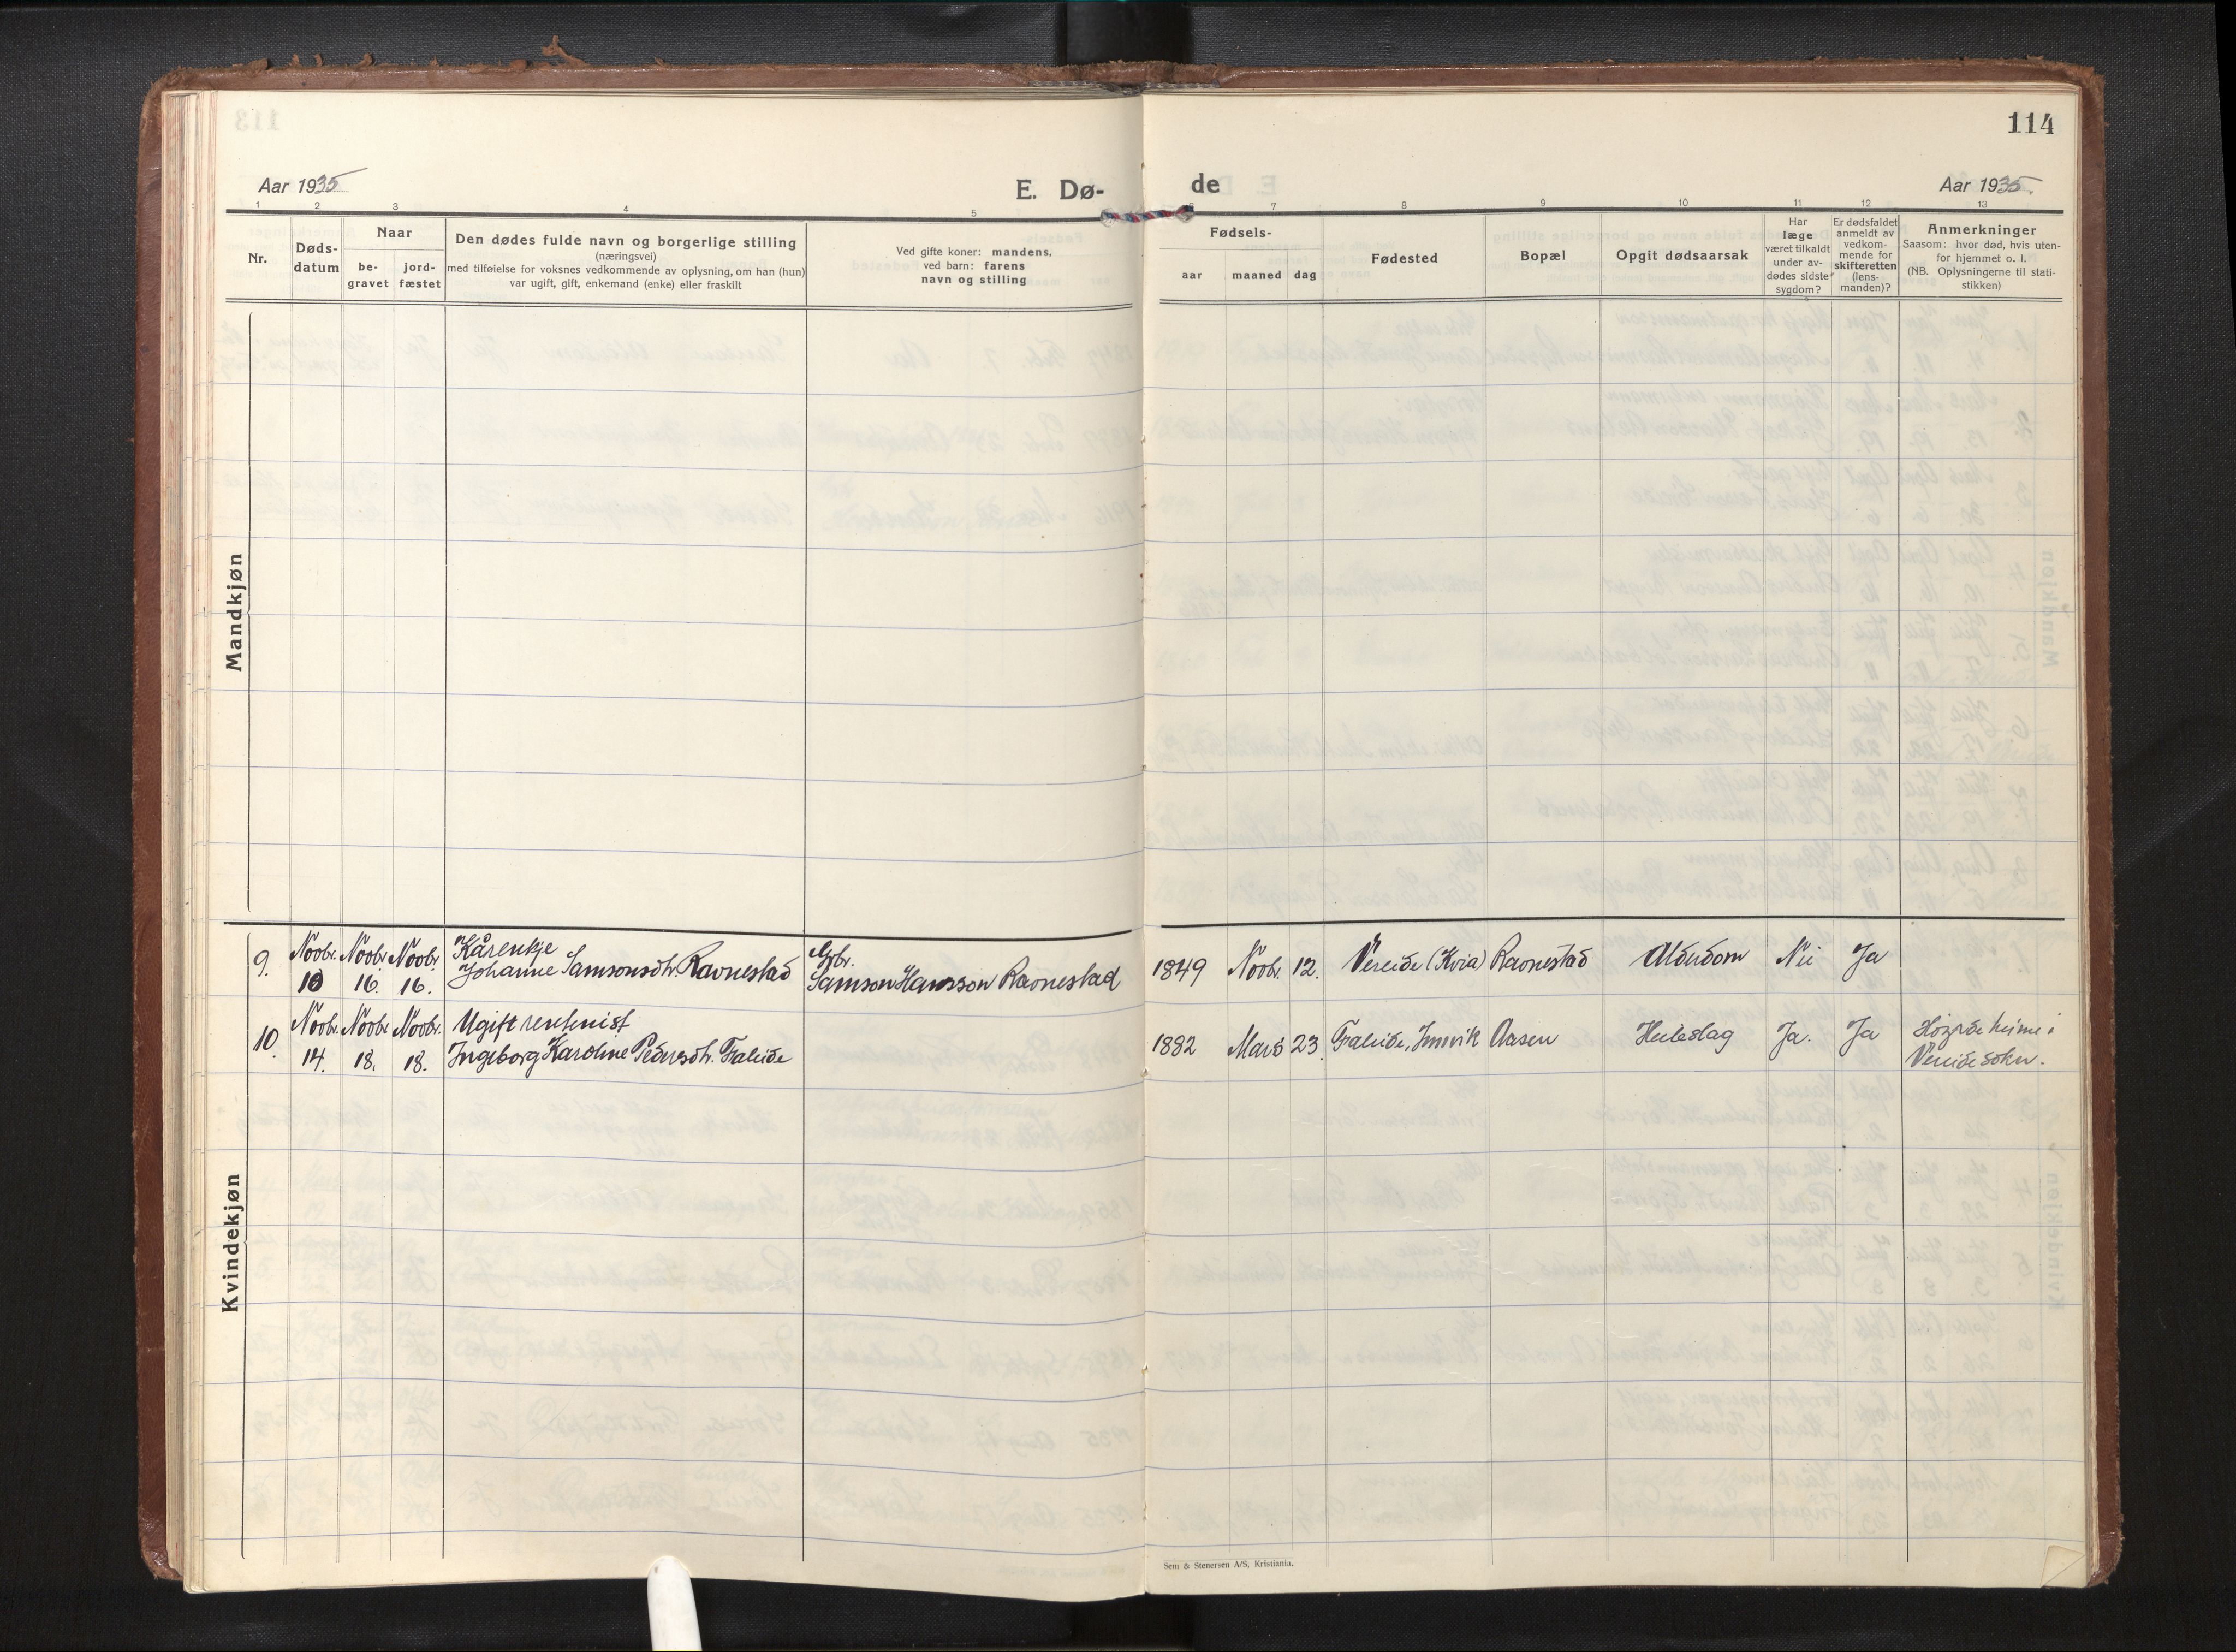 114
Aar 1935
E. Dø-
de
Aar 1935.
1 2 3 4 5 7 8 9 10 11 12 13
Nr.
Døds-
datum
Naar
be-
gravet
jord-
fæstet
Den dødes fulde navn og borgerlige stilling
(næringsvei)
med tilføielse for voksnes vedkommende av oplysning, om han (hun)
var ugift, gift, enkemand (enke) eller fraskilt
Ved gifte koner: mandens,
ved barn: farens
navn og stilling
Fødsels-
aar maaned dag
Fødested
Bopæl
Opgit dødsaarsak
Har
læge
været tilkaldt
under av-
dødes sidste
sygdom?
Er dødsfaldet
anmeldt av
vedkom-
mende for
skifteretten
(lens-
manden)?
Anmerkninger
Saasom: hvor død, hvis uten-
for hjemmet o. l.
(NB. Oplysningerne til stati-
stikken)
Mandkjøn
Kvindekjøn
9. Novbr. 10 Novbr. 16. Novbr. 16. Kårenkje
Johanne Samsonsdtr. Ravnestad
Gbr.
Samson Hansson Ravnestad
1849 Novbr. 12. Vereide (Kvia) Ravnestad Alderdom Nei Ja
10. Novbr. 14. Novbr. 18. Novbr. 18. Ugift rentenist
Ingeborg Karoline Pedersdtr. Faleide
1882 Mars 23. Faleide, Innvik Aasen Heileslag Ja. Ja
Høgrde heime i
Vereide sokn.
Sem & Stenersen A/S, Kristiania.